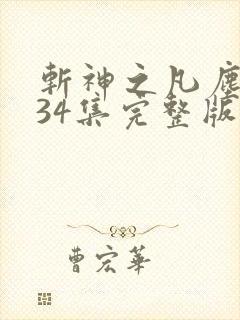 斬神之凡塵
34集完整版
曹宏華